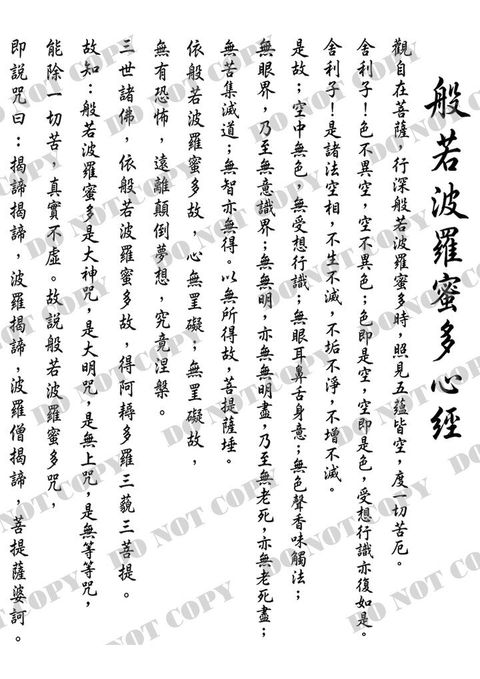 般若波羅蜜多心經
觀自在菩薩，行深般若波羅蜜多時，照見五蘊皆空，度一切苦厄。
舍利子！色不異空，空不異色；色即是空，空即是色，受想行識亦復如是。
舍利子！是諸法空相，不生不滅，不垢不淨，不增不減。
是故；空中無色，無受想行識；無眼耳鼻舌身意；無色聲香味觸法；
無眼界，乃至無意識界；無無明，亦無無明盡，乃至無老死，亦無老死盡；
無苦集滅道；無智亦無得。以無所得故，菩提薩埵。
依般若波羅蜜多故，心無罣礙；無罣礙故，
無有恐怖，遠離顛倒夢想，究竟涅槃。
三世諸佛，依般若波羅蜜多故，得阿耨多羅三藐三菩提。
故知：般若波羅蜜多是大神咒，是大明咒，是無上咒，是無等等咒，
能除一切苦，真實不虛。故說般若波羅蜜多咒，
即說咒曰：揭諦揭諦，波羅揭諦，波羅僧揭諦，菩提薩婆訶。
DO NOT COPY